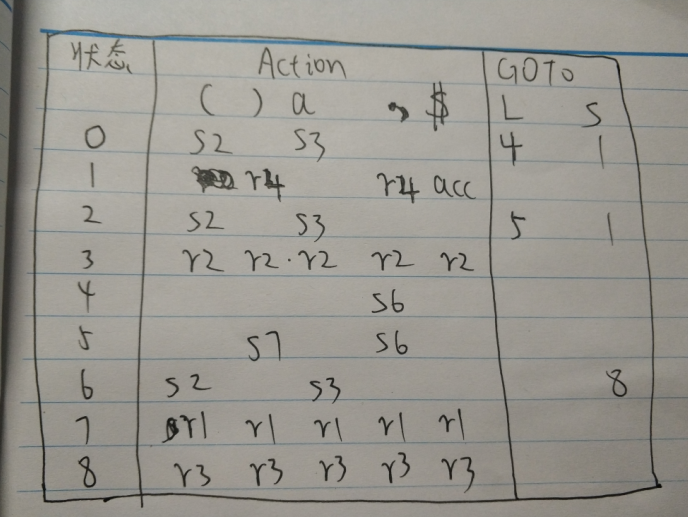 状态 Action GOTO
( ) a , $ L S
0 S2 S3 4 1
1 r4 r4 acc
2 S2 S3 5 1
3 r2 r2 r2 r2 r2
4 S6
5 S7 S6
6 S2 S3 8
7 r1 r1 r1 r1 r1
8 r3 r3 r3 r3 r3